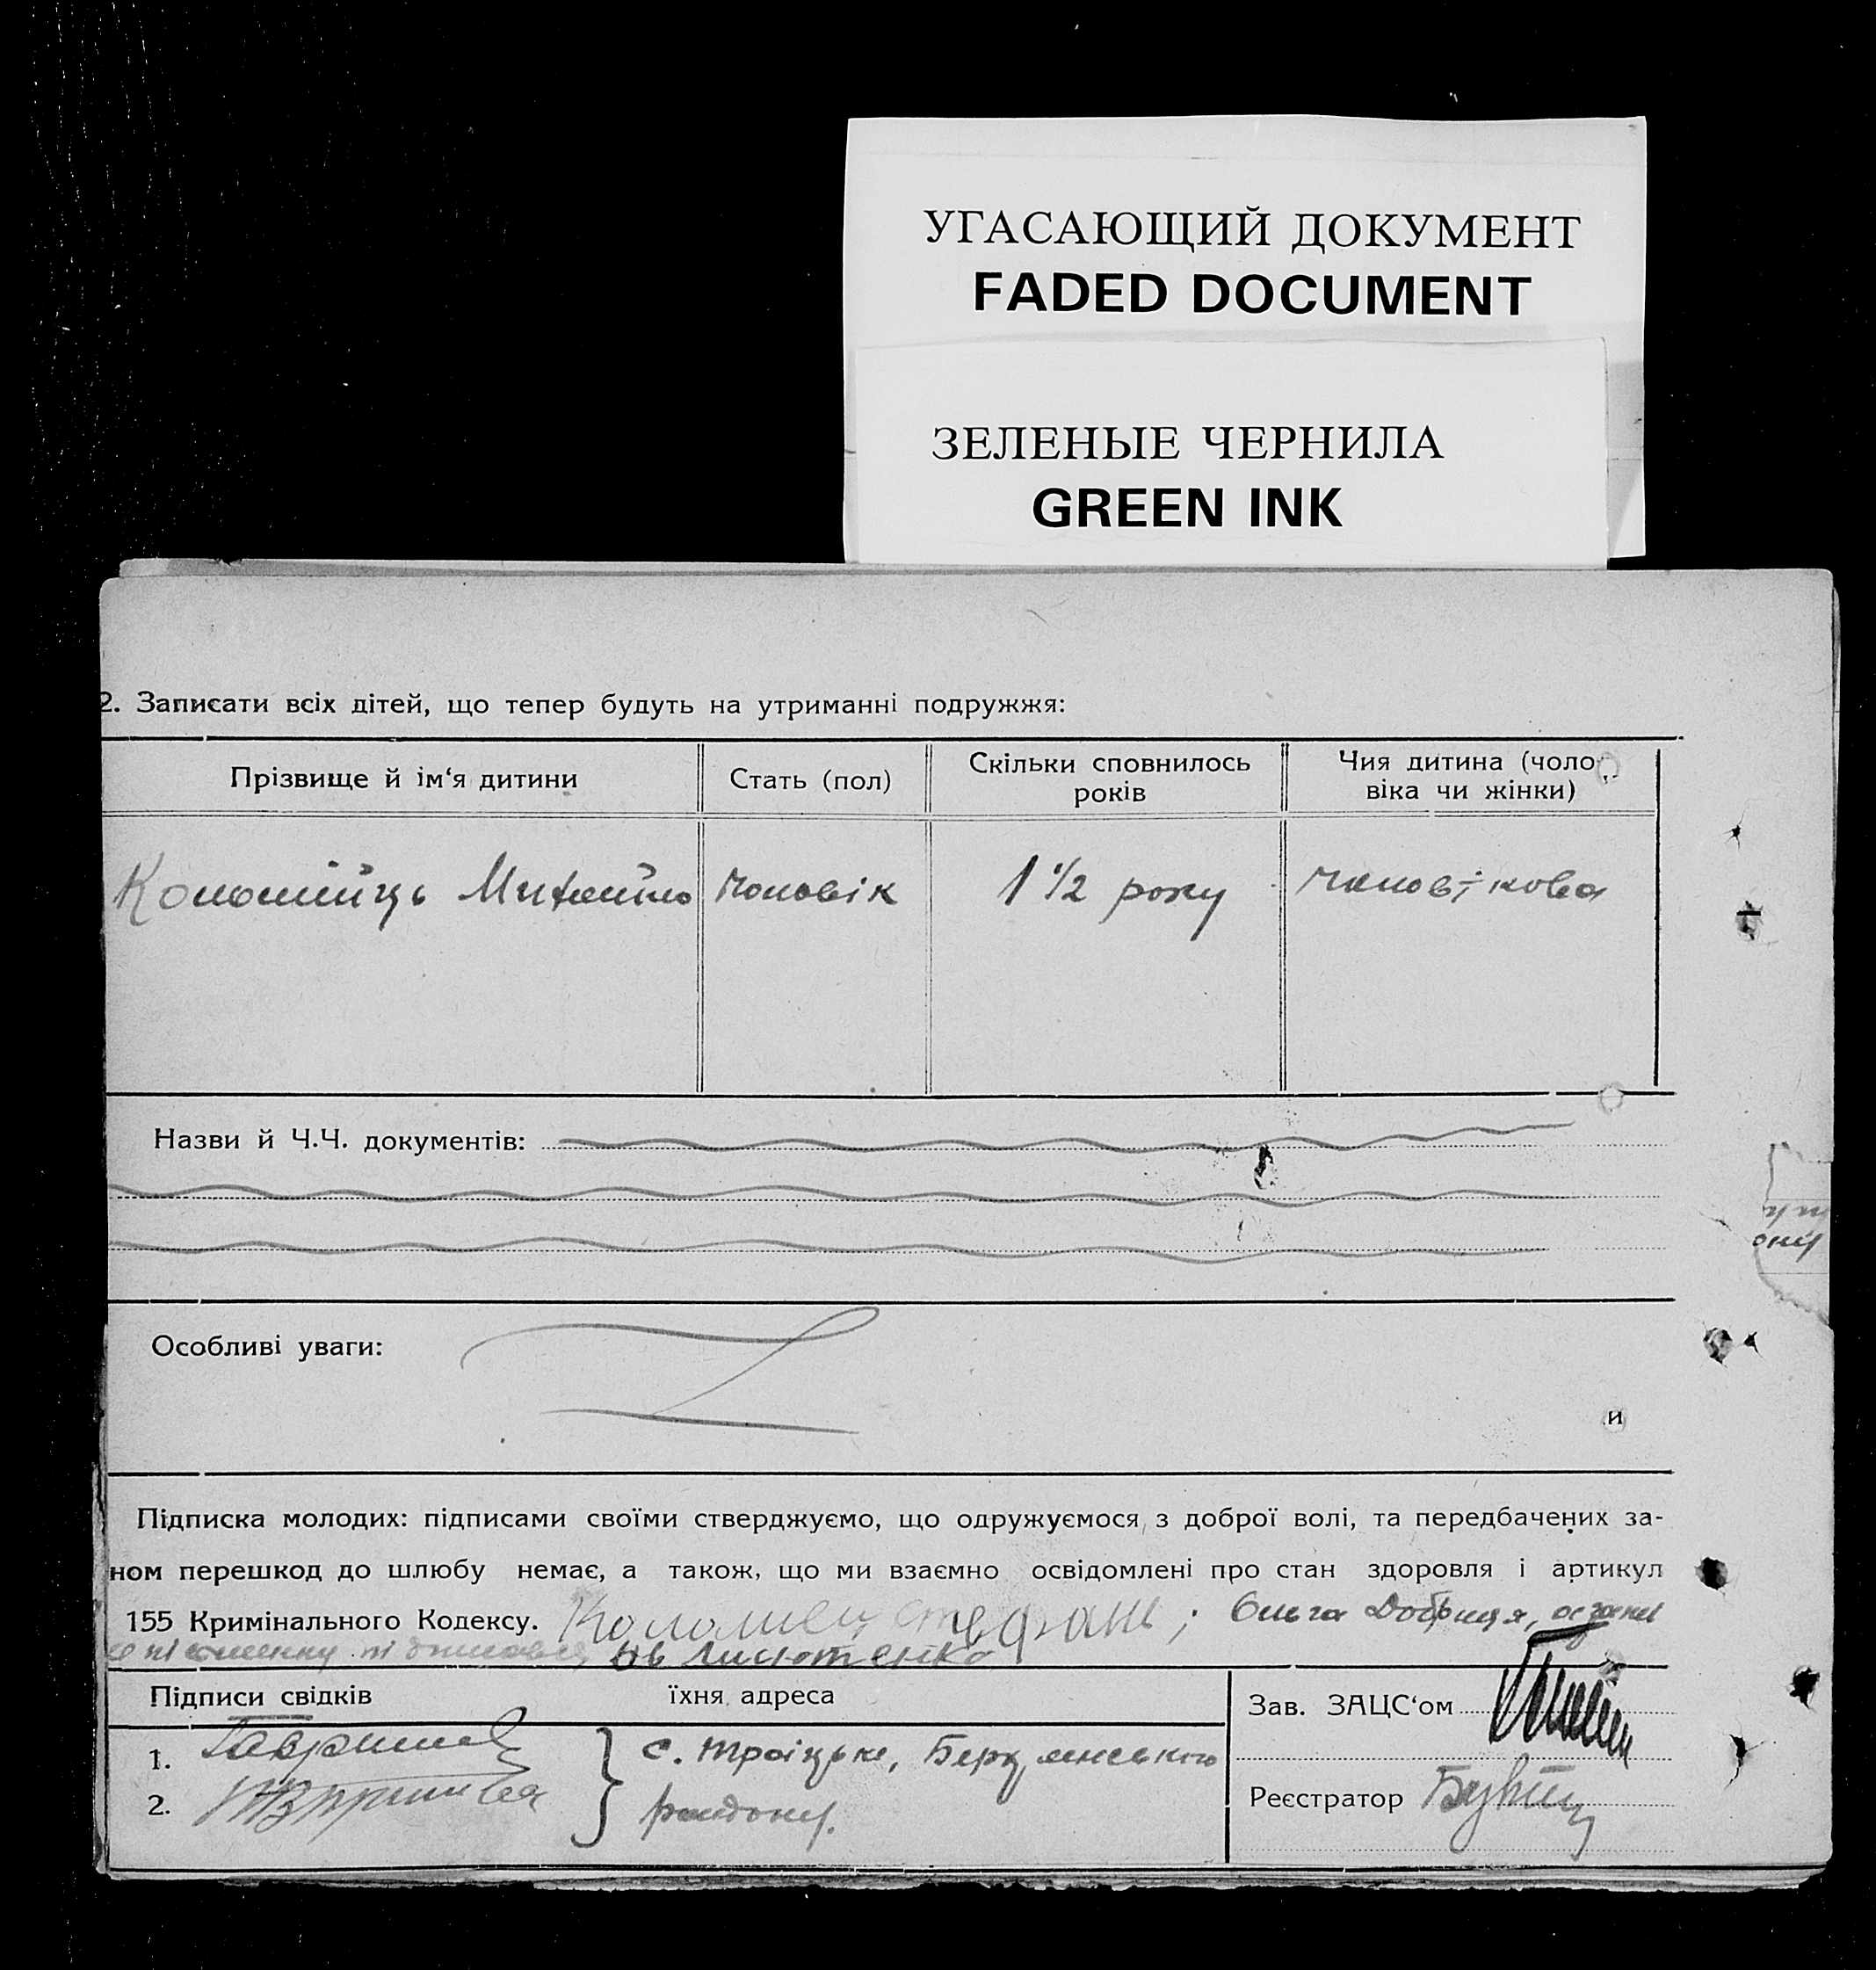 УГАСАЮЩИЙ ДОКУМЕНТ
FADED DOCUMENT
ЗЕЛЕНЫЕ ЧЕРНИЛА
GREEN INK
2. Записати всіх дітей, що тепер будуть на утриманні подружжя:
Прізвище й ім'я дитини
Стать (пол)
Скільки сповнилось
років
Чия дитина (чоло-
віка чи жінки)
Коломійць Михайло
чоловік
1 1/2 року
чоловікова
Назви й Ч.Ч. документів:
Особливі уваги:
и
Підписка молодих: підписами своїми стверджуємо, що одружуємося з доброї волі, та передбачених за-
ном перешкод до шлюбу немає, а також, що ми взаємно освідомлені про стан здоров'я і артикул
155 Кримінального Кодексу. Коломиец Стефань; Ольга Добриця,
Підписи свідків
їхня адреса
Зав. ЗАЦС'ом
1.
с. Троіцьке, Бердянського
2.
району.
Реєстратор